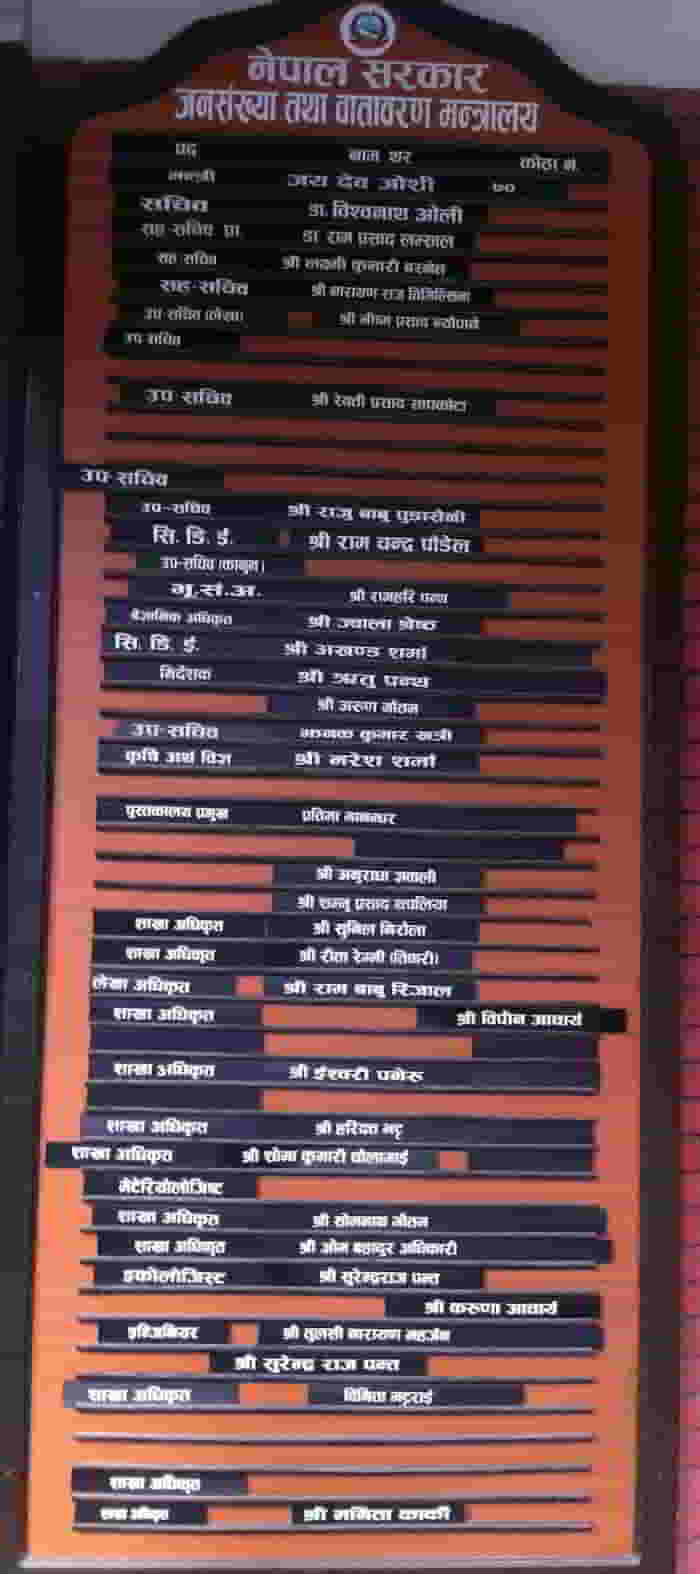 नेपाल सरकार
जनसंख्या तथा वातावरण मन्त्रालय
पद नाम थर कोठा नं.
मन्त्री जय देव जोशी ७०
सचिव डा. विश्वनाथ ओली
सह-सचिव प्रा. डा. राम प्रसाद लम्साल
सह सचिव श्री लक्ष्मी कुमारी बस्नेत
सह-सचिव श्री नारायण राज तिमिल्सिना
उप-सचिव (लेखा) श्री भीष्म प्रसाद न्यौपाने
उप सचिव
उप सचिव श्री रेवती प्रसाद सापकोटा
उप सचिव
उप-सचिव श्री राजु बाबु पुडासैनी
सि. डि. ई. श्री राम चन्द्र पौडेल
उप-सचिव (कानुन)
भू.सं.अ. श्री रामहरि पन्थ
बैज्ञानिक अधिकृत श्री ज्वाला श्रेष्ठ
सि. डि. ई. श्री अखण्ड शर्मा
निर्देशक श्री ऋतु पन्थ
श्री अरुण गौतम
उप-सचिव झनक कुमार खत्री
कृषि अर्थ विज्ञ श्री नरेश शर्मा
पुस्तकालय प्रमुख प्रतिमा मानन्धर
श्री अनुराधा
श्री शम्भु प्रसाद
शाखा अधिकृत श्री सुनिल निरौला
शाखा अधिकृत श्री रीता रेग्मी (तिवारी)
लेखा अधिकृत श्री राम बाबु रिजाल
शाखा अधिकृत श्री विपीन आचार्य
शाखा अधिकृत श्री ईश्वरी पनेरु
शाखा अधिकृत श्री हरिदत्त भट्ट
शाखा अधिकृत श्री शोभा कुमारी
मेटेरियोलोजिष्ट
शाखा अधिकृत श्री सोमनाथ गौतम
शाखा अधिकृत श्री ओम बहादुर अधिकारी
इकोलोजिस्ट श्री सुरेन्द्रराज पन्त
श्री करुणा आचार्य
इन्जिनियर श्री तुलसी नारायण महर्जन
श्री सुरेन्द्र राज पन्त
शाखा अधिकृत विनिता भट्टराई
शाखा अधिकृत
शाखा अधिकृत श्री ममिता कार्की